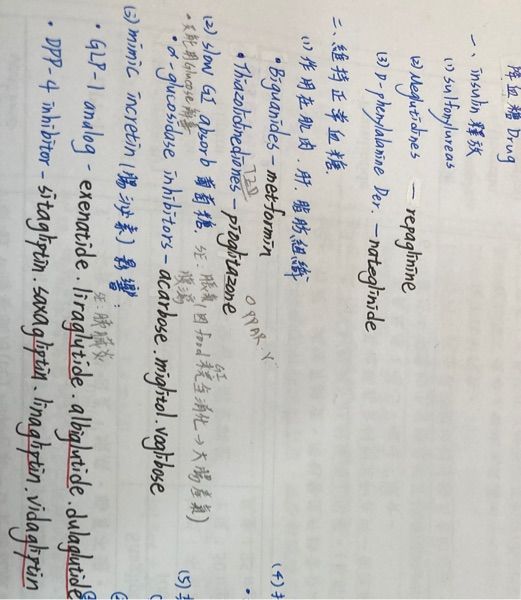 降血糖 Drug
一、insulin 釋放
(1) sulfonylureas
(2) Meglitidines — repaglinine
(3) D-phenylalanine Der. — nateglinide
二、維持正常血糖
(1) 作用在肌肉、肝、脂肪組織
• Biguanides - metformin
• Thiazolidinediones - pioglitazone
TZD
PPAR-γ
(2) slow GI absorb 葡萄糖
• α-glucosidase inhibitors - acarbose. miglitol. voglibose
(3) mimic incretin (腸泌素) 影響:
• GLP-1 analog - exenatide. liraglutide. albiglutide. dulaglutide
• DPP-4 inhibitor - sitagliptin. saxagliptin. linagliptin. vidagliptin
(4)
(5)